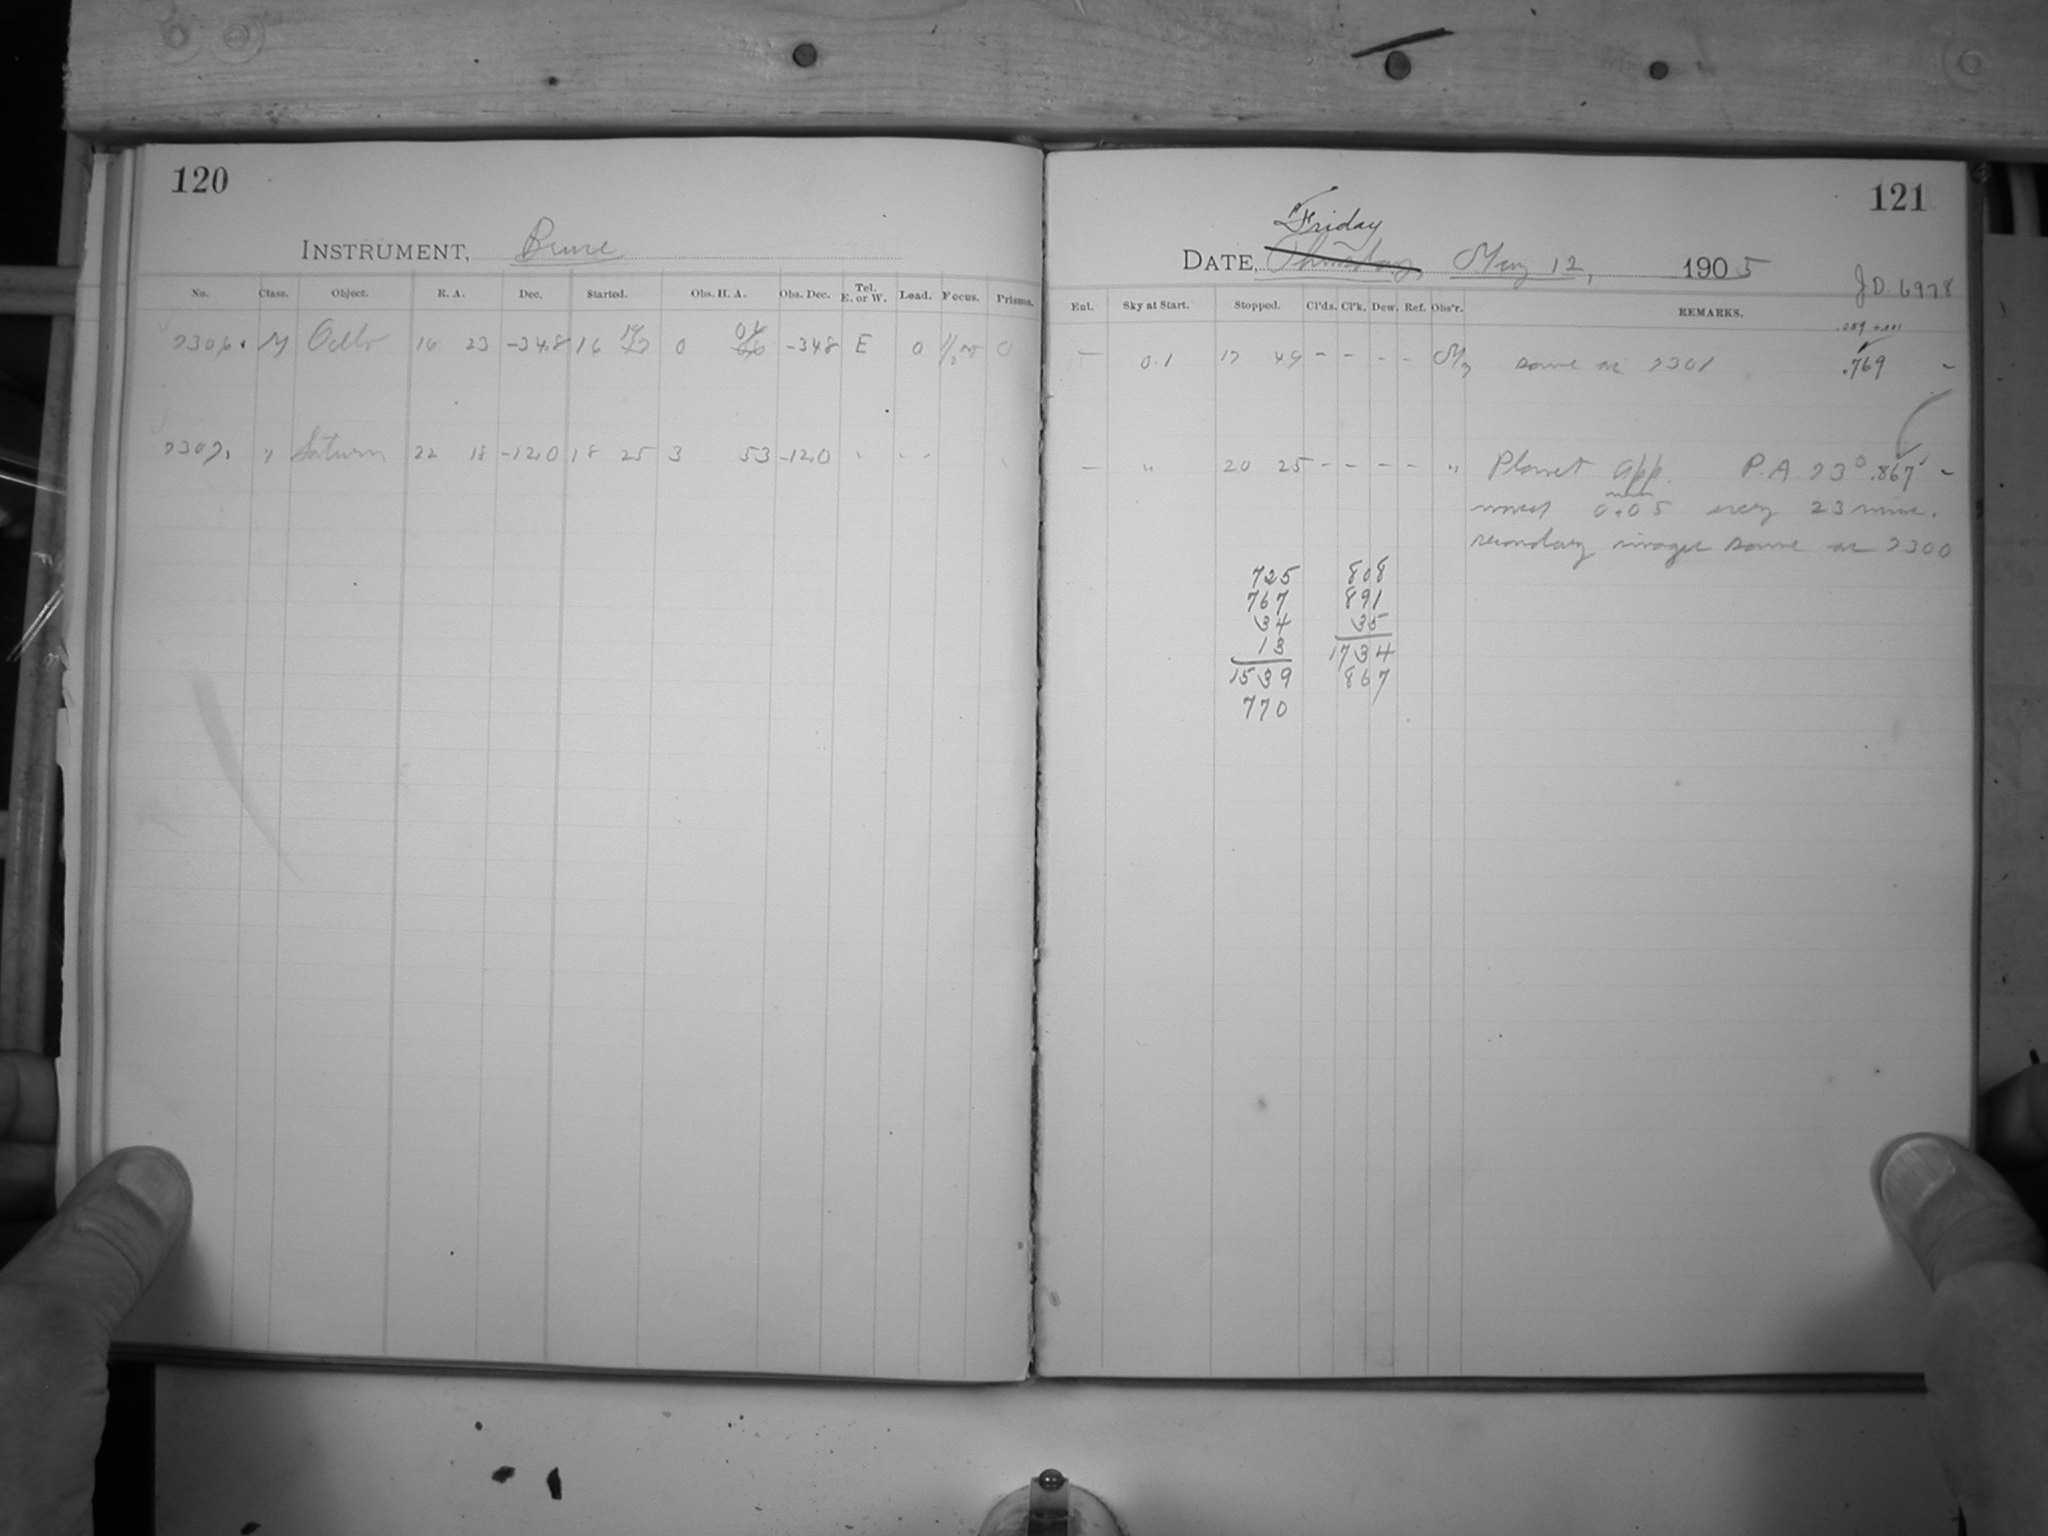 120
INSTRUMENT, Bruce
No. Class. Object. R. A. Dec. Started. Obs. H. A. Obs. Dec. Tel. E. or W. Lead. Focus. Prisms.
7306. M Ocllo 16 23 -34.8 16 0 -34.8 E 0 0
7307. " Saturn 22 18 -12.0 18 25 3 53 -12.0
121
Friday
DATE, Thursday, May 12, 1905
J.D. 6978
Ent. Sky at Start. Stopped. Cl'ds. Cl'k. Dew. Ref. Obs'r. REMARKS.
— 0.1 17 49 - - - - same as 7301 .769 -
— " 20 25 - - - - " Planet app. P.A. 73° .867 -
moves 0.05 every 23 mins.
secondary images same as 7300
725 808
767 891
34 35
13 1734
1539 867
770